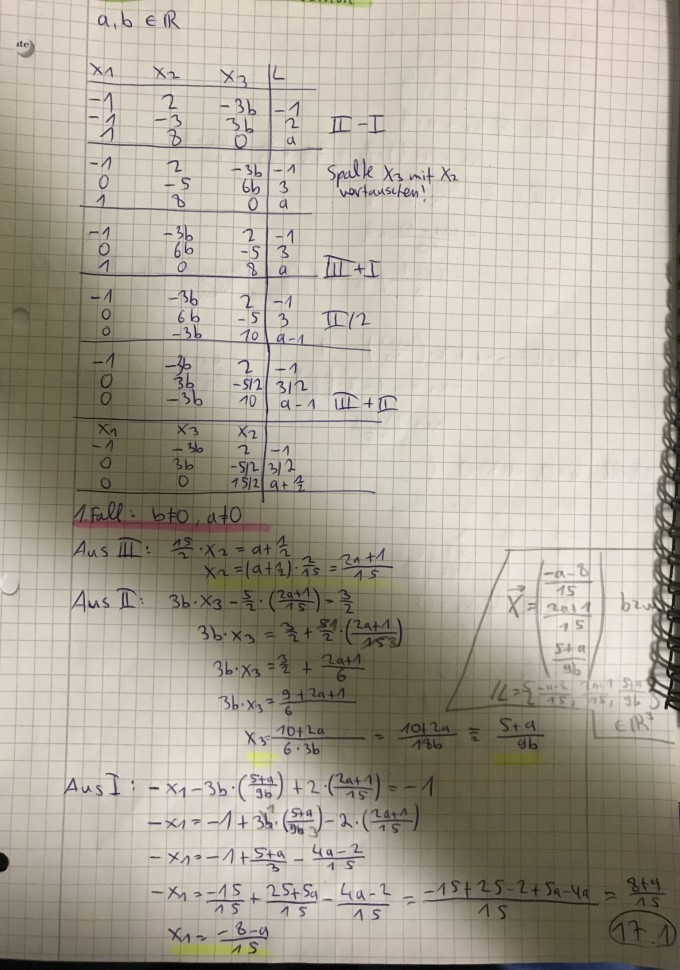 a, b ∈ ℝ
x1 x2 x3 | L
-1 2 -3b | -1
-1 -3 3b | 2 II - I
1 8 0 | a
-1 2 -3b | -1 Spalte x3 mit x2
0 -5 6b | 3 vertauschen!
1 8 0 | a
-1 -3b 2 | -1
0 6b -5 | 3
1 0 8 | a III + I
-1 -3b 2 | -1
0 6b -5 | 3 II/2
0 -3b 10 | a-1
-1 -3b 2 | -1
0 3b -5/2 | 3/2
0 -3b 10 | a-1 III + II
x1 x3 x2
-1 -3b 2 | -1
0 3b -5/2 | 3/2
0 0 15/2 | a+1/2
1. Fall: b≠0, a≠0
Aus III: 15/2 · x2 = a+1/2
x2 = (a+1/2) · 2/15 = 2a+1/15
Aus II: 3b · x3 - 5/2 · (2a+1/15) = 3/2
3b · x3 = 3/2 + 51/2 · (2a+1/153)
3b · x3 = 3/2 + 2a+1/6
3b · x3 = 9+2a+1/6
x3 = 10+2a/6·3b = 10+2a/18b = 5+a/9b
x⃗ = (-a-8/15 2a+1/15 5+a/9b) bzw
∈ℝ³
Aus I: -x1 - 3b · (5+a/9b) + 2 · (2a+1/15) = -1
-x1 = -1 + 3b · (5+a/9b) - 2 · (2a+1/15)
-x1 = -1 + 5+a/3 - 4a-2/15
-x1 = -15/15 + 25+5a/15 - 4a-2/15 = -15+25-2+5a-4a/15 = 8+a/15
x1 = -8-a/15
17.1